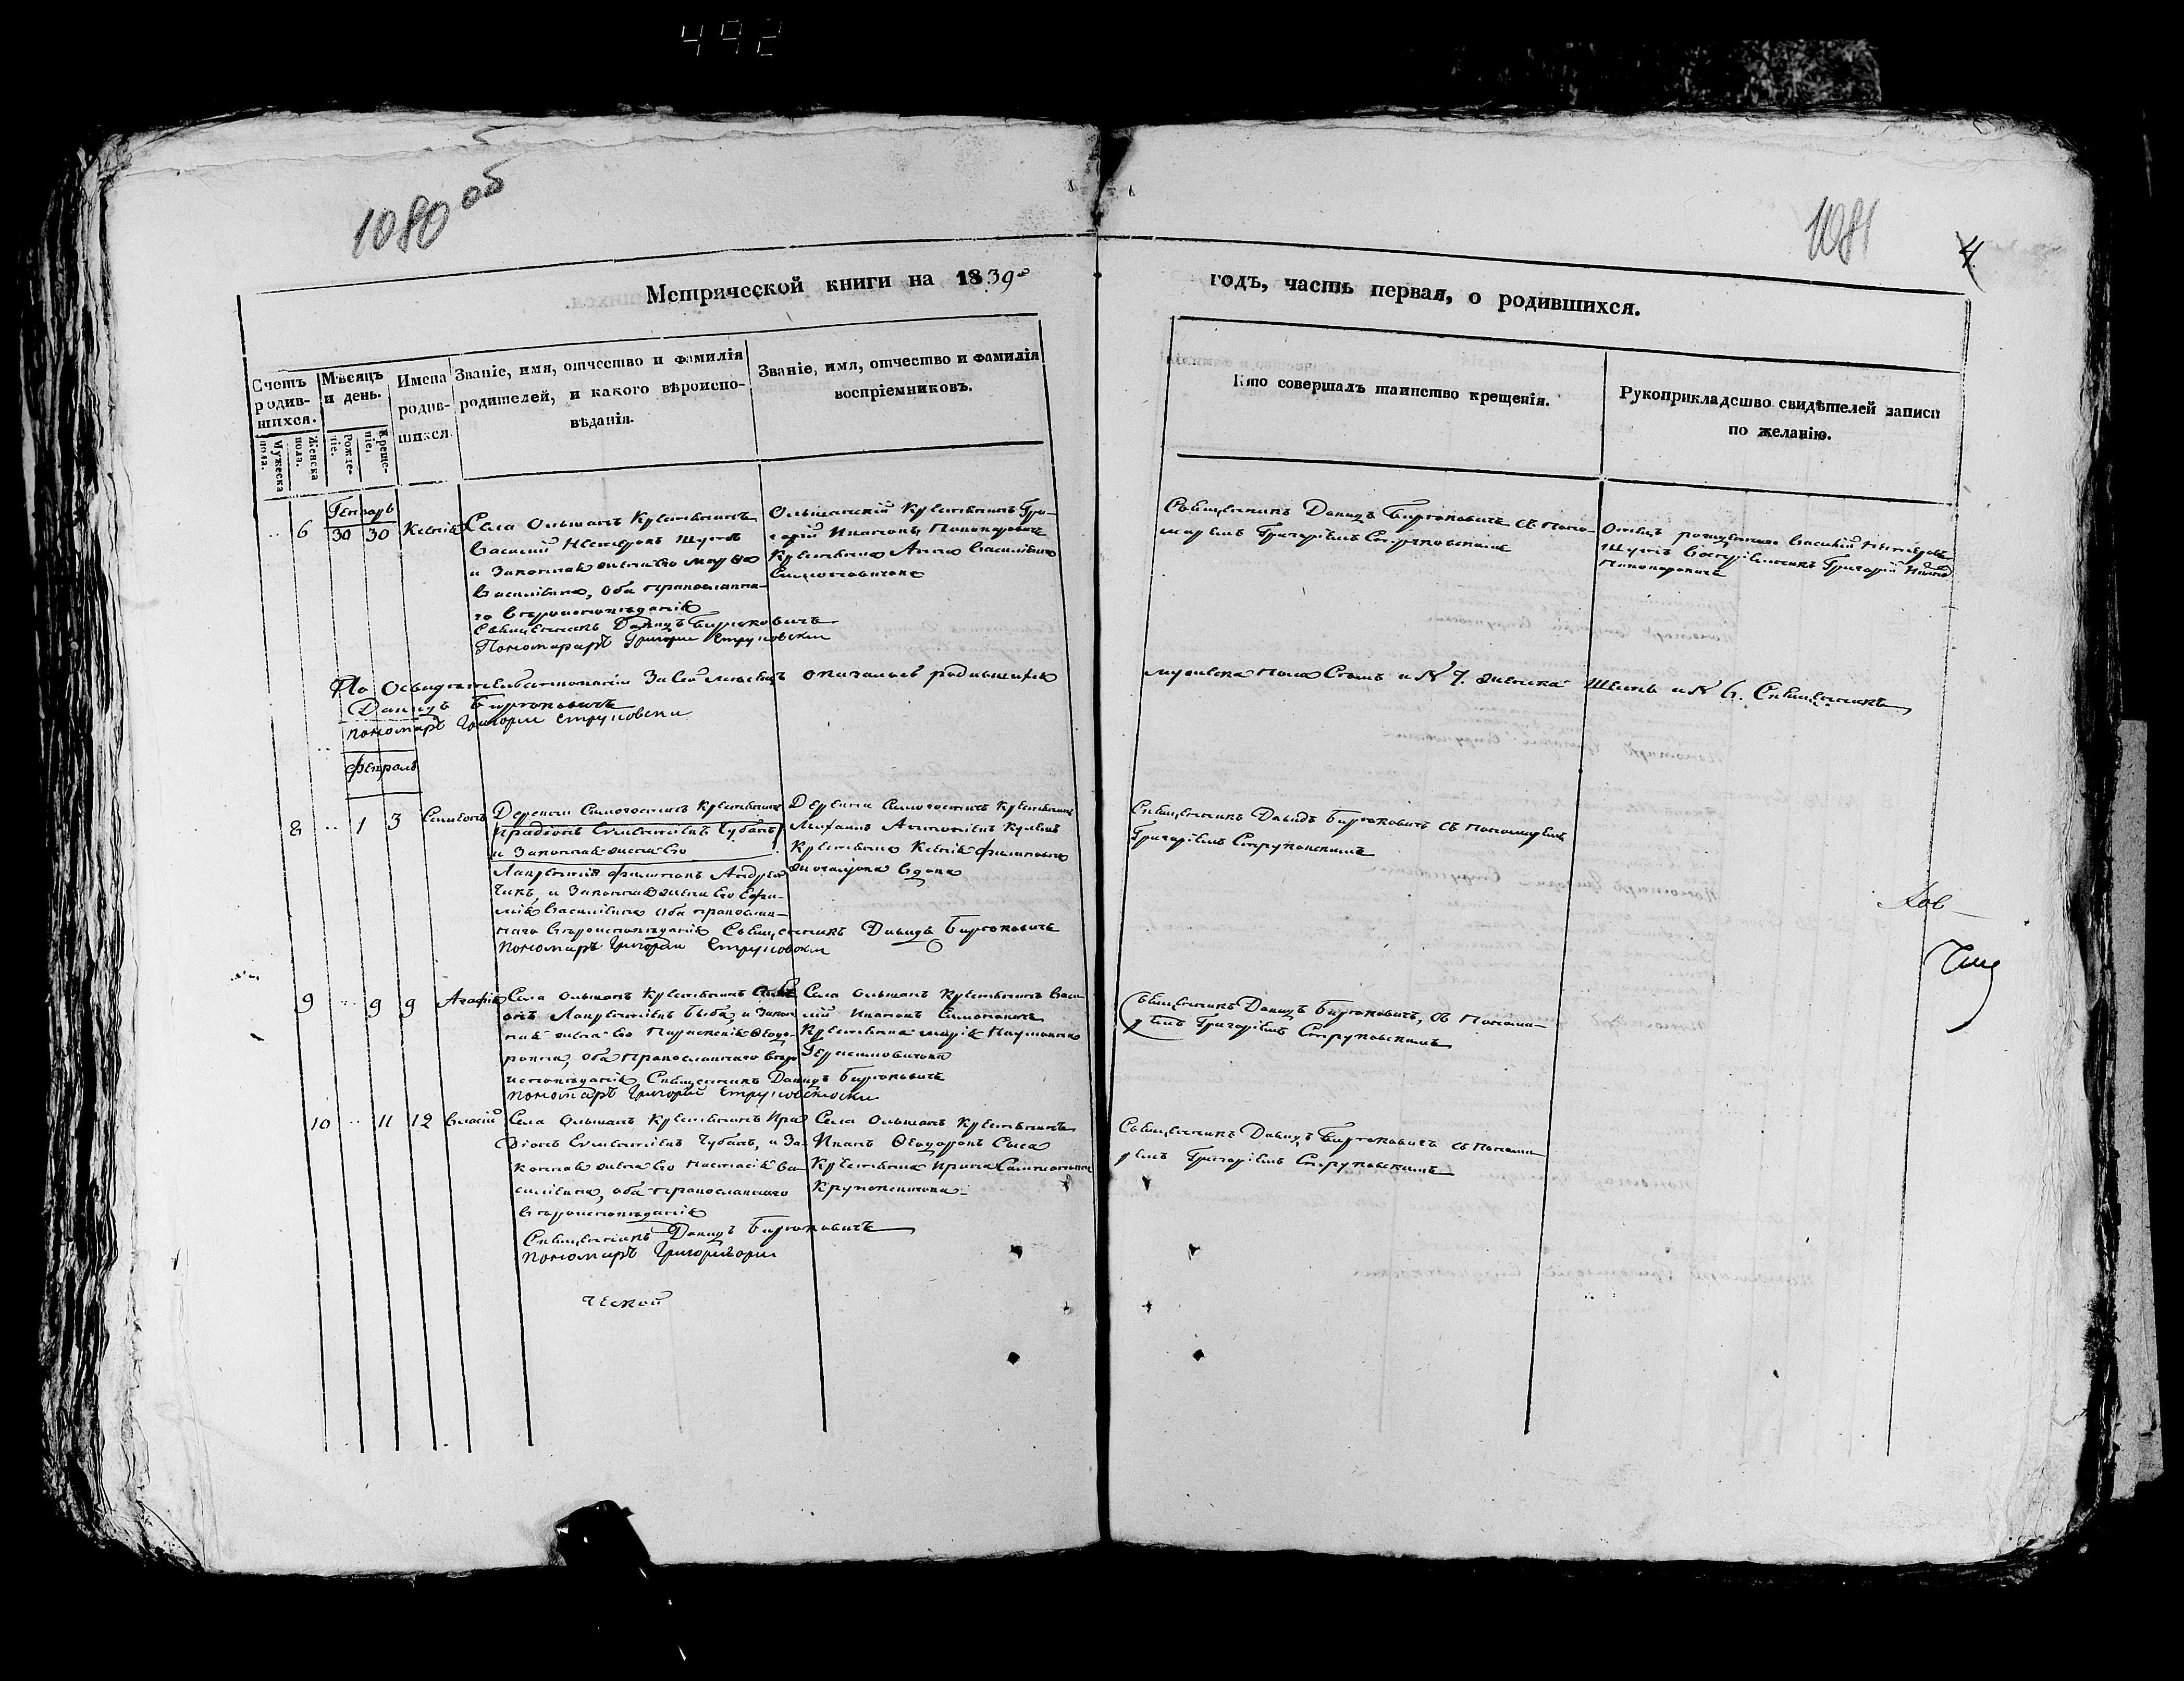 492
1080 об
1081
4
Метрической книги на 1839й
годъ, часть первая, о родившихся.
Счетъ родив-
шихся.
Мѣсяцъ
и день.
Имена
родив-
шихся
Званіе, имя, отчество и фамилія
родителей, и какого вѣроиспо-
вѣданія.
Званіе, имя, отчество и фамилія
воспріемниковъ.
Кто совершалъ таинство крещенія.
Рукоприкладство свидѣтелей записи
по желанію.
Мужеска
пола.
Женска
пола.
Рожде-
ніе.
Креще-
ніе.
Генварь
6 30 30 Ксенія
Села Ольшанъ Крестьянинъ
Василий Нестеровъ Шуть
и Законная жена его
Василіева, оба православна-
го вѣроисповѣданія
Священникъ Давидъ Бирюковичъ
Пономаръ Григорий Струковски
Ольшанский Крестьянинъ Гри-
горій Ивановъ Понопаровичъ
Крестьянка Анна Василіева
Священникъ Давидъ Бирюковичъ съ Поно-
маремъ Григоріемъ Струковскимъ
Отецъ рожденнаго Василий Нестеровъ
Шуть Воспріемникъ Григорій
Понопаровичъ
По Освидѣтельствованіи За сей мѣсяцъ оказалось родившихся
мужеска пола Семь и N 7. женска Шесть и N 6. Священникъ
Давидъ Бирюковичъ
пономаръ Григорий Струковски
Февраль
8 1 3 Симеонъ
Деревни Симогостичъ Крестьянинъ
Ирадіонъ Климентіевъ Чубанъ
и Законная жена его
Лаврентій Филиповъ Андрей-
чикъ, и Законная жена его Ефи-
мія Василіева Оба православ-
наго вѣроисповѣданія Священникъ Давидъ Бирюковичъ
пономаръ Григорий Струковски
Деревни Симогостичъ Крестьянинъ
Михаилъ Антоніевъ
Крестьянка Ксенія Филипова
вдова
Священникъ Давидъ Бирюковичъ съ пономаремъ
Григоріемъ Струковскимъ
9 9 9 Агафія
Села Ольшанъ Крестьянинъ
Лаврентіевъ Быба, и Закон-
ная жена его Параскевія Ѳеодо-
рова, оба православнаго вѣро
исповѣданія, Священникъ Давидъ Бирюковичъ
пономаръ Григорий
Села Ольшанъ Крестьянинъ Васи-
лій Ивановъ Симоновичъ
Крестьянка Марія Наумовна
Священникъ Давидъ Бирюковичъ, съ Понома-
ремъ Григоріемъ Струковскимъ
10 11 12 Власій
Села Ольшанъ Крестьянинъ Ира
діонъ Климентіевъ Чубанъ, и За-
конная жена его Настасія Ва-
силіева, оба православнаго
вѣроисповѣданія
Священникъ Давидъ Бирюковичъ
пономаръ
Села Ольшанъ Крестьянинъ
Иванъ Ѳеодоровъ
Крестьянка Ирина
Священникъ Давидъ Бирюковичъ съ Понома-
ремъ Григоріемъ Струковскимъ
ческой